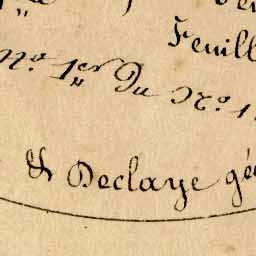 Feuill
N° 1er Du N° 1
& Declaye gé